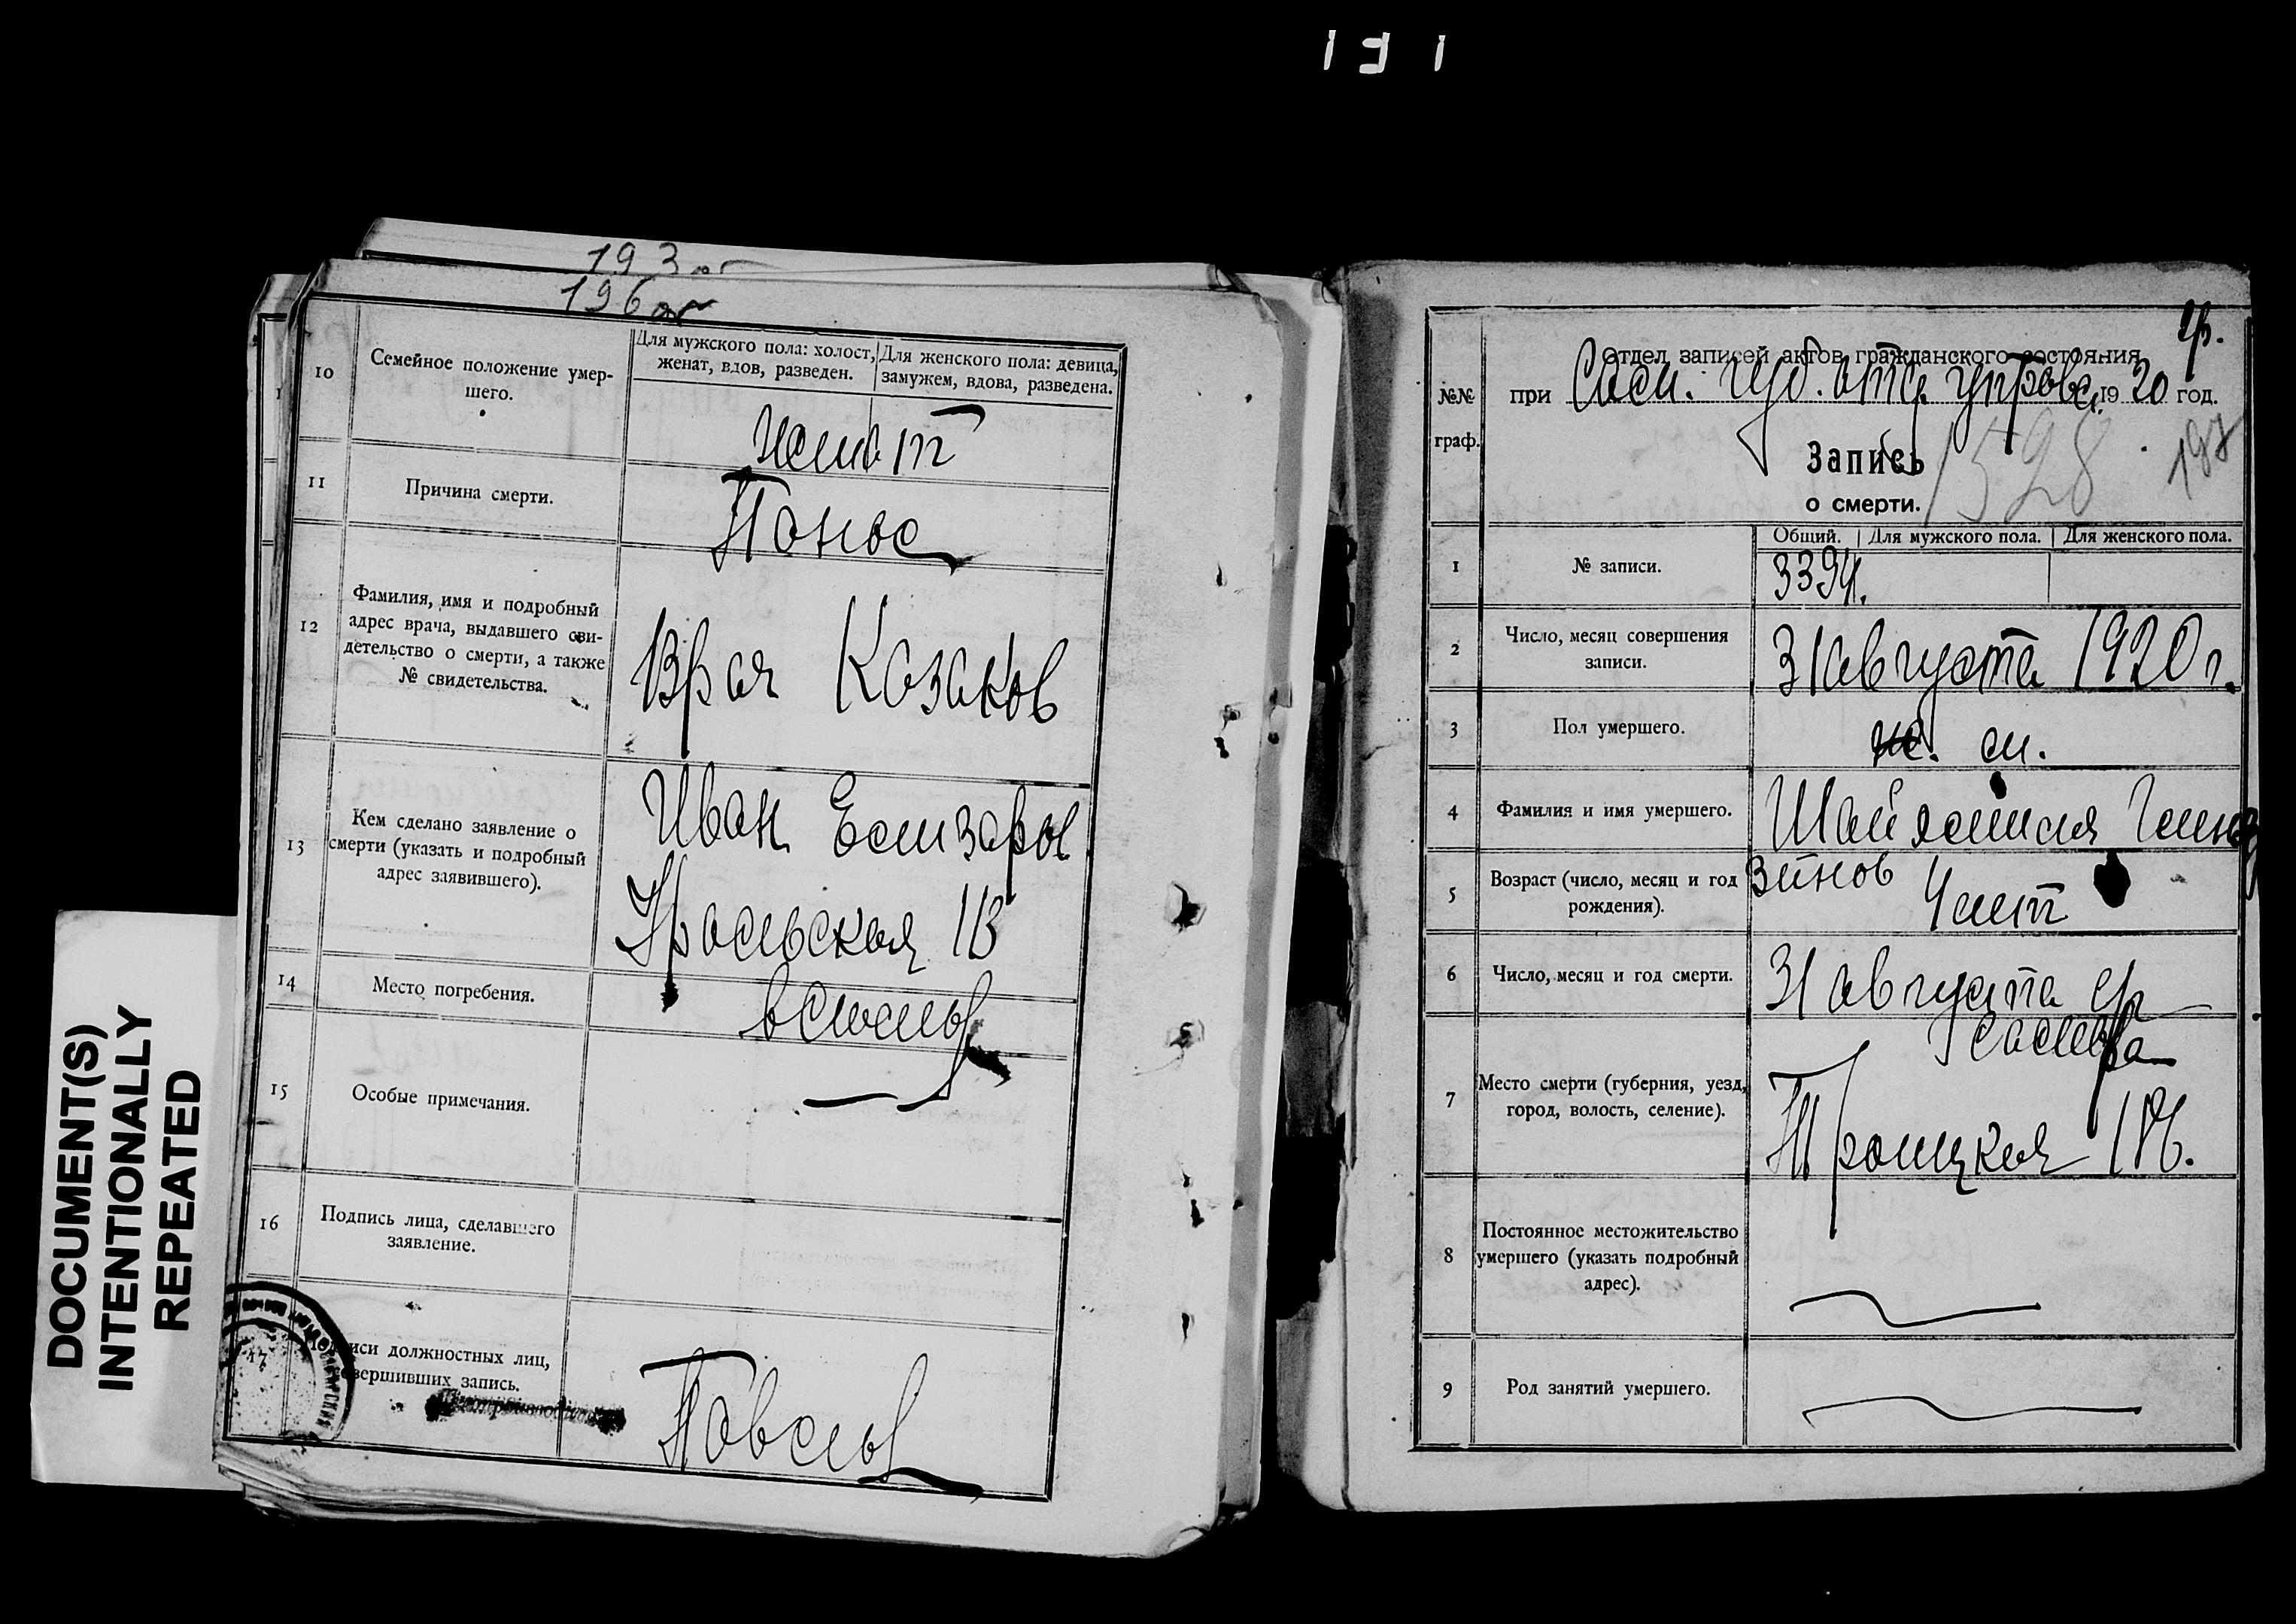 131
193 об
196 об
DOCUMENT(S)
INTENTIONALLY
REPEATED
10
Семейное положение умер-
шего.
Для мужского пола: холост,
женат, вдов, разведен.
Для женского пола: девица,
замужем, вдова, разведена.
11
Причина смерти.
Понос
12
Фамилия, имя и подробный
адрес врача, выдавшего сви-
детельство о смерти, а также
№ свидетельства.
Врач Казаков
13
Кем сделано заявление о
смерти (указать и подробный
адрес заявившего).
Иван Елизаров
Уральская 113
14
Место погребения.
15
Особые примечания.
16
Подпись лица, сделавшего
заявление.
17
Подписи должностных лиц,
совершивших запись.
Павлов
№№
граф.
Отдел записей актов гражданского состояния
при Сам. Губ. отд. управл. 1920 год.
197
Запись 1598
о смерти.
1
№ записи.
Общий.
Для мужского пола.
Для женского пола.
3394.
2
Число, месяц совершения
записи.
31 августа 1920 г.
3
Пол умершего.
ж. м.
4
Фамилия и имя умершего.
5
Возраст (число, месяц и год
рождения).
4 лет
6
Число, месяц и год смерти.
31 августа
7
Место смерти (губерния, уезд,
город, волость, селение).
Самара
Троицкая
8
Постоянное местожительство
умершего (указать подробный
адрес).
9
Род занятий умершего.